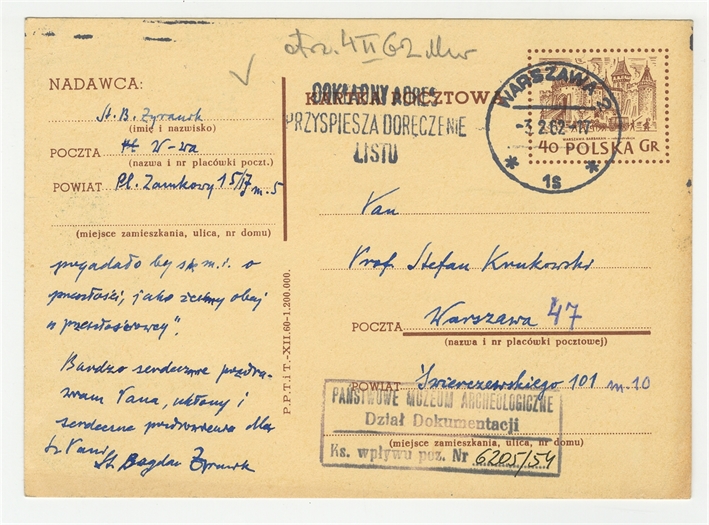 otrz. 4 II 62
NADAWCA:
St. B. Zyranik
(imię i nazwisko)
POCZTA W-wa
(nazwa i nr placówki poczt.)
POWIAT Pl. Zamkowy 15/17 m. 5
(miejsce zamieszkania, ulica, nr domu)
pogadało by się m.i. o
przeszłości, jako żeśmy obaj
"przeszłościowcy".
Bardzo serdecznie pozdra-
wiam Pana, ukłony i
serdeczne pozdrowienia dla
Pani
St. Bogdan
P.P.T.iT.-XII.60-1.200.000.
KARTKA POCZTOWA
DOKŁADNY ADRES
PRZYSPIESZA DORĘCZENIE
LISTU
WARSZAWA 2
-3.2.62-17
1s
40 POLSKA GR
Pan
Prof. Stefan Krukowski
POCZTA Warszawa 47
(nazwa i nr placówki pocztowej)
POWIAT Świerczewskiego 101 m. 10
(miejsce zamieszkania, ulica, nr domu)
PAŃSTWOWE MUZEUM ARCHEOLOGICZNE
Dział Dokumentacji
Ks. wpływu poz. Nr 6205/54